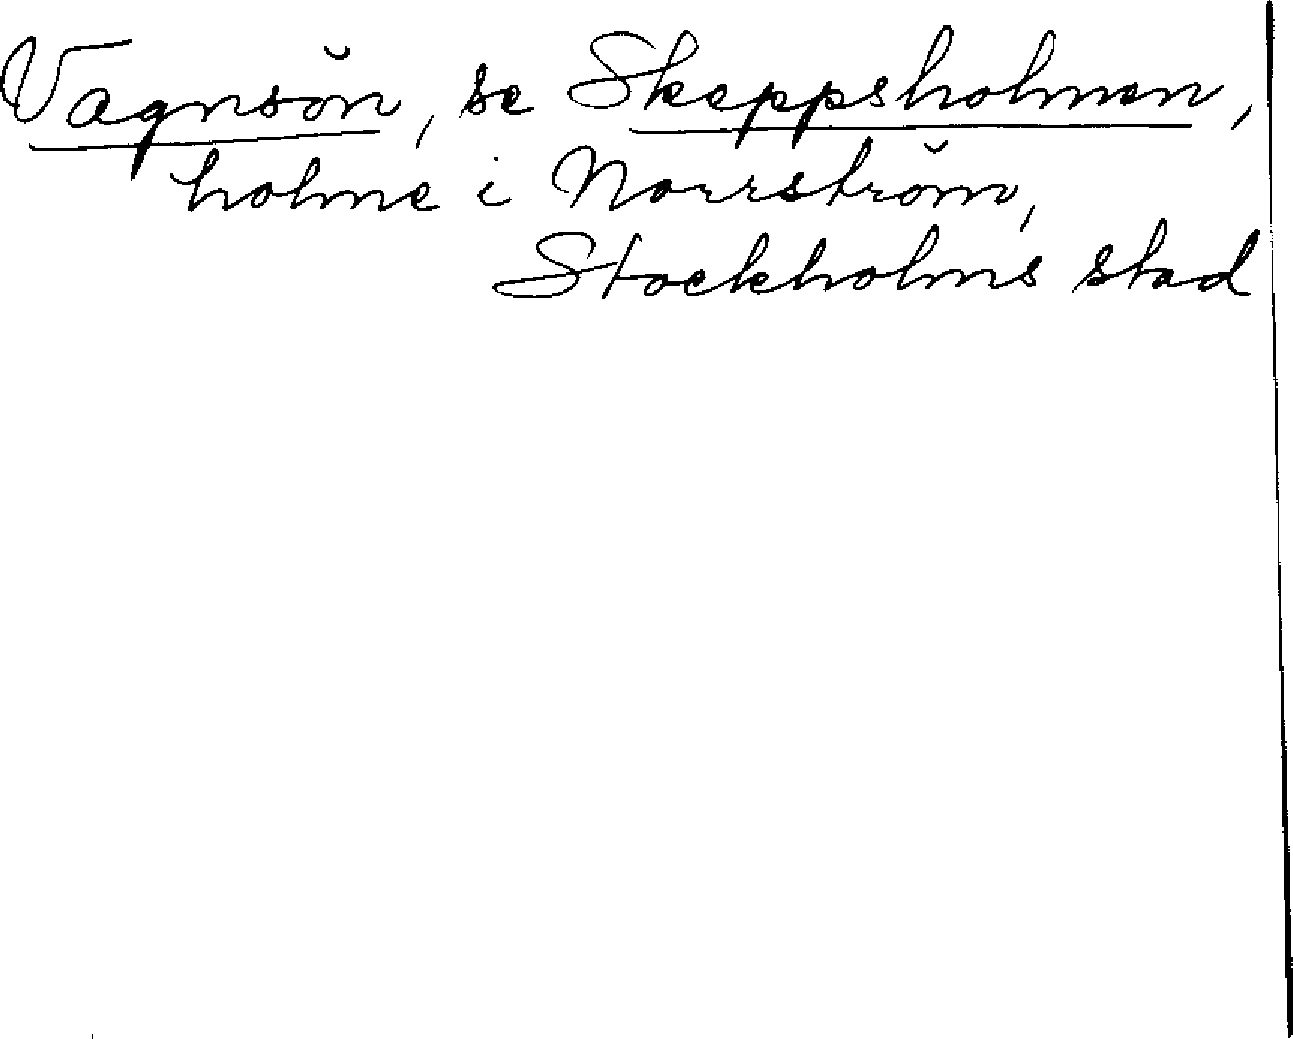 Vagnsön, se Skeppsholmen,
holme i Norrström,
Stockholms stad